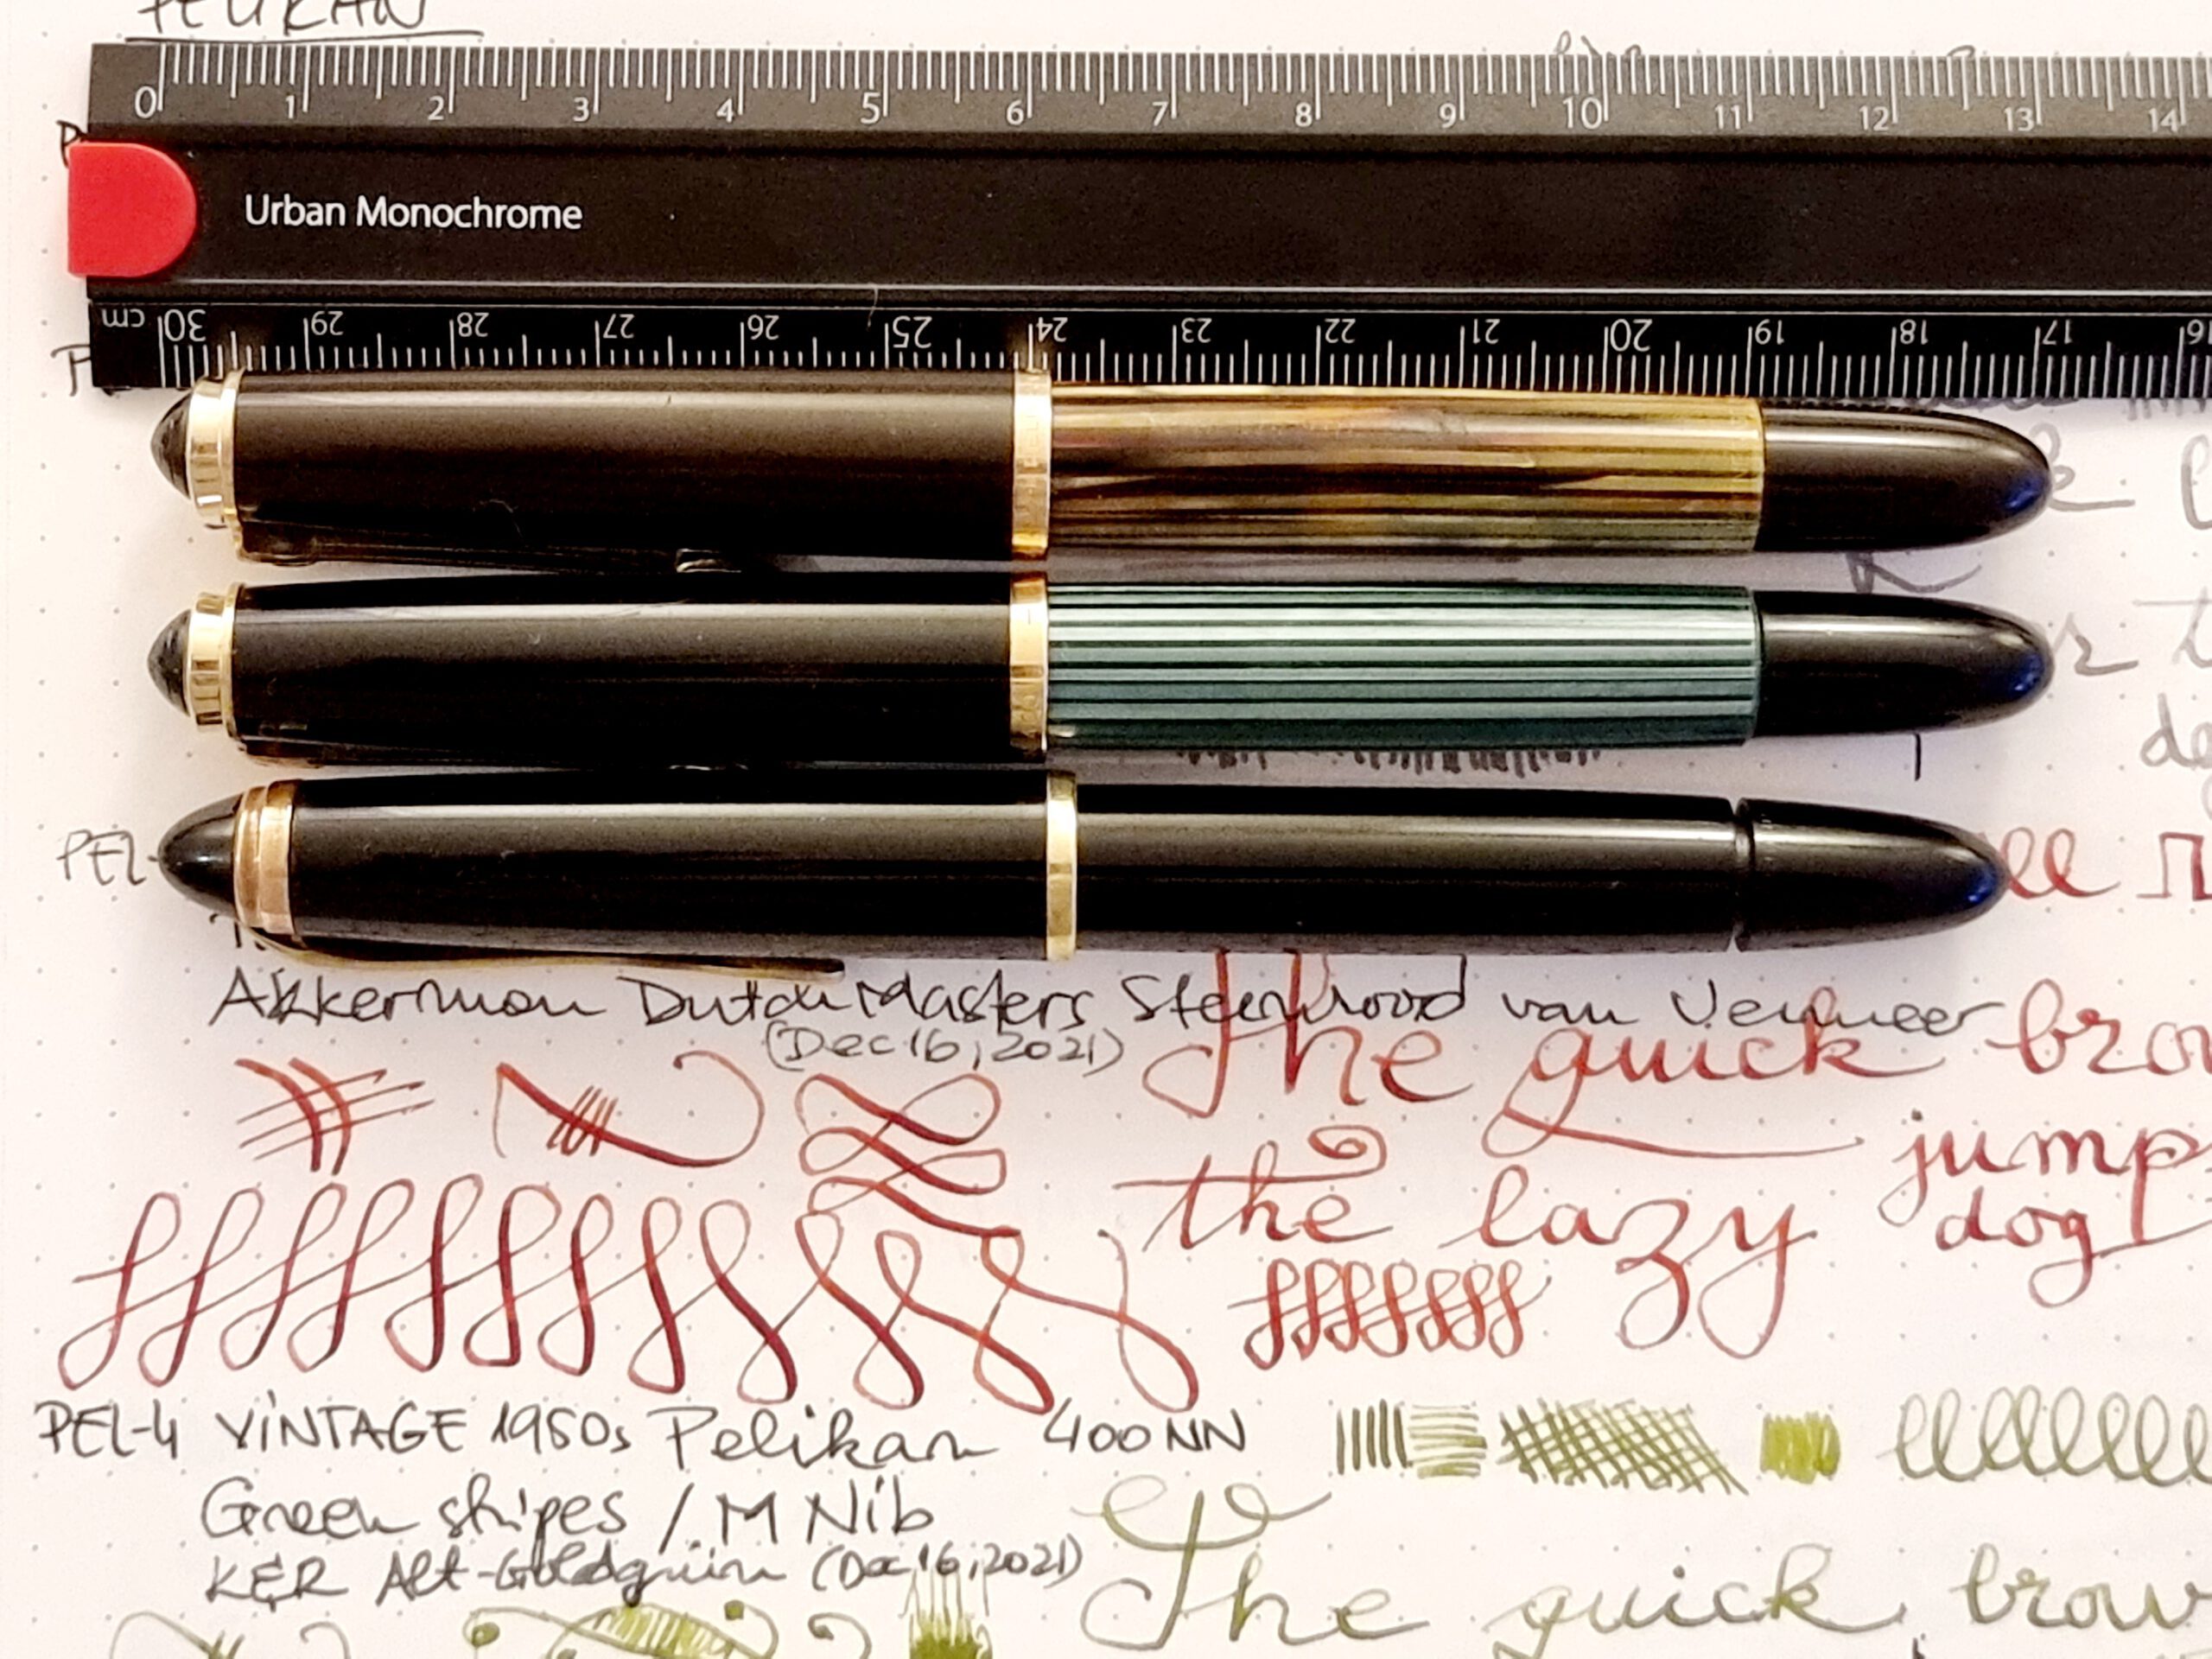 PELIKAN
0 1 2 3 4 5 6 7 8 9 10 11 12 13 14
Urban Monochrome
cm 30 29 28 27 26 25 24 23 22 21 20 19 18 17 16
PEL-
Akkerman Dutch Masters Steenrood van Vermeer
(Dec 16, 2021)
The quick brow
jump
the lazy dog
PEL-4 VINTAGE 1950s Pelikan 400NN
Green stripes / M Nib
K&R Alt-Goldgrün (Dec 16, 2021)
The quick brow